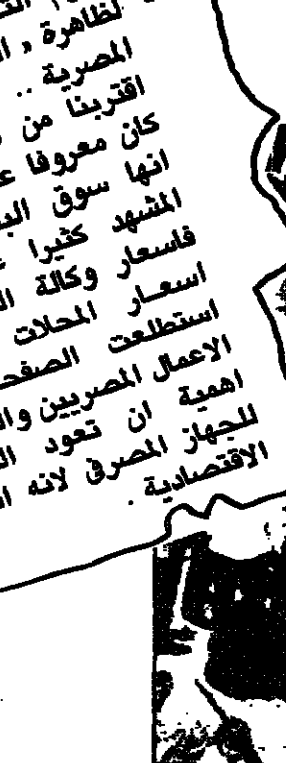 لظاهرة « ال
المصرية ..
اقتربنا من
كان معروفا ع
انها سوق الب
المشهد كثيرا
فاسعار وكالة ال
اسعار المحلات
استطلعت الصفح
الاعمال المصريين وال
اهمية ان تعود ال
للجهاز المصرفى لانه ا
الاقتصادية .